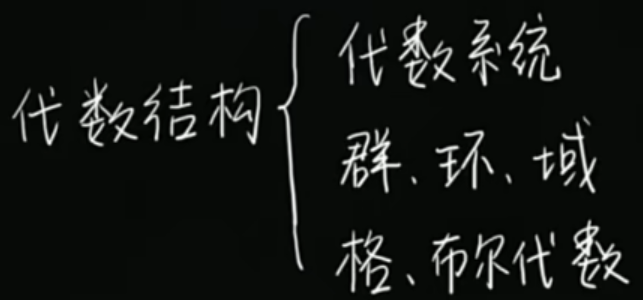 代数结构
代数系统
群、环、域
格、布尔代数